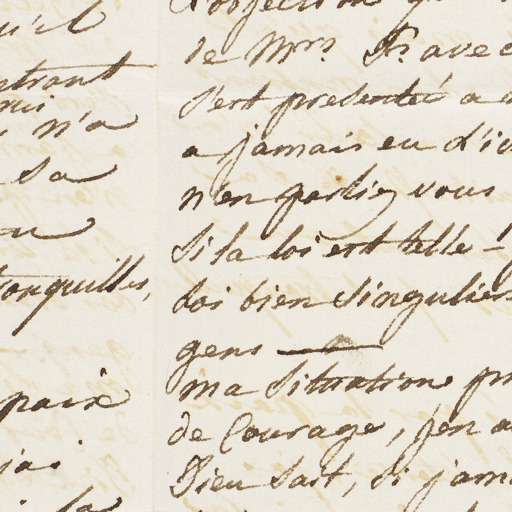 qu'il
entrant
n'a
sa
tranquilles,
paix
de Mrs. Fr. avec
s'est présenté a
a jamais eu d'i
n'en parliez vous
si la loi est telle -
loi bien singuliers
gens —
ma situation pr
de Courage, j'en a
Dieu sait, si jama